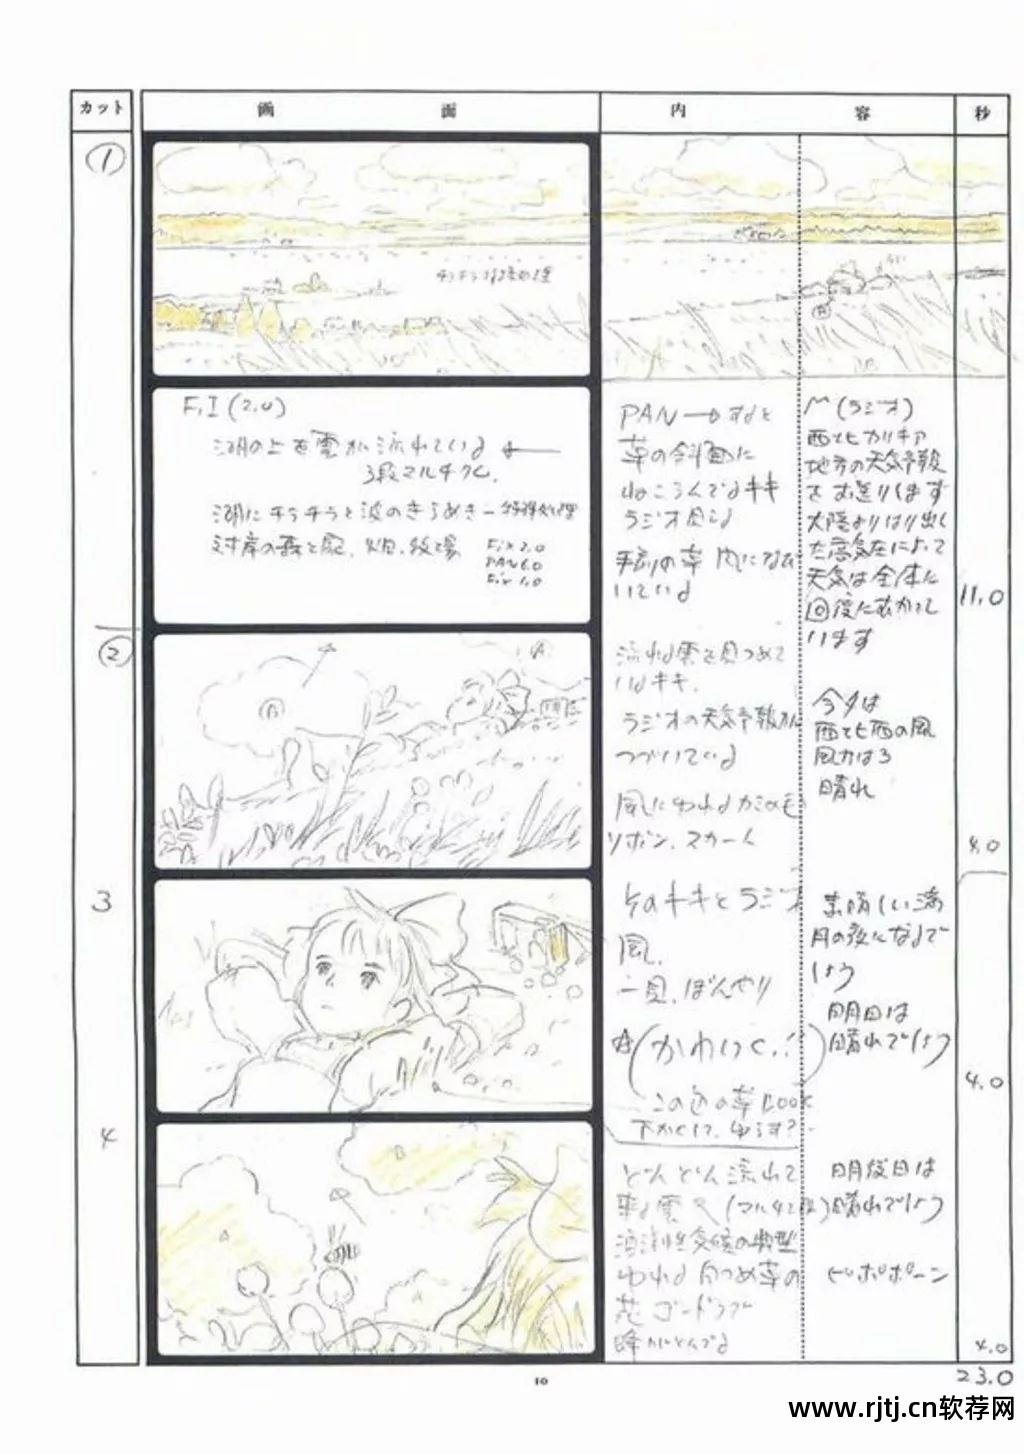 カット 画 面 内 容 秒
①
F,I (2.0)
湖の上を雲が流れている
3段マルチクミ.
湖にチラチラと波のきらめき—特殊処理
対岸の森と
Fix 2.0
PAN 6.0
Fix
PAN → すると
草の斜面に
ねころんでるキキ
ラジオ
手前の草 風になび
いている
(ラジオ)
西北カリキア
地方の天気予報
をお送りします
大陸よりはり出し
た高気圧によって
天気は全体に
回復にむかって
います
11.0
②
A
B
流れる雲を見つめて
いるキキ.
ラジオの天気予報が
つづいている
風にゆれるカミの毛
リボン、スカート
今夕は
西北西の風
風力は3
晴れ
4.0
3
キキとラジオ
風.
ぼんやり
(かわいく‥!)
この草BOOK
下
素晴しい満
月の夜になるで
しょう
明日は
晴れでしょう
4.0
4
B
A
A
どんどん流れて
来る雲
ゆれる
花
とんでる
明後日は
晴れでしょう
ピポポポーン
4.0
10
23.0
www.rjtj.cn软荐网